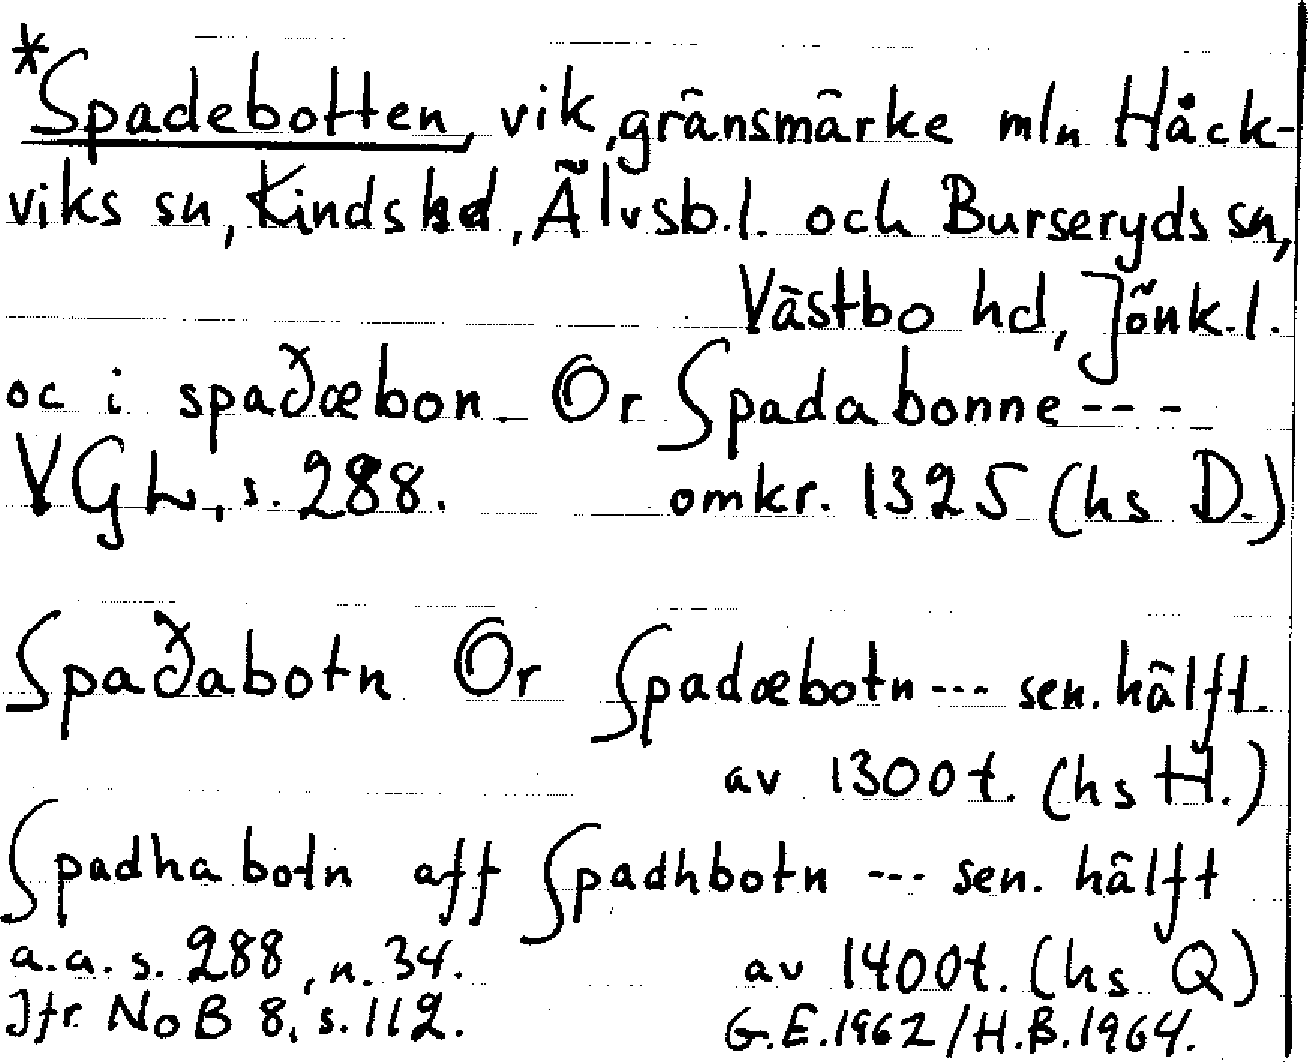 *Spadebotten, vik, gränsmärke mln Håck-
viks sn, Kinds hd, Älvsb.l. och Burseryds sn,
Västbo hd, Jönk.l.
oc i spaðæbon. Or Spadabonne---
VGL, s. 288. omkr. 1325 (hs D.)
Spaðabotn Or Spadæbotn--- sen. hälft.
av 1300t. (hs H.)
Spadhabotn aff Spadhbotn --- sen. hälft
a.a. s. 288, n. 34. av 1400t. (hs Q)
Jfr NoB 8, s. 112. G.E. 1962/H.B. 1964.